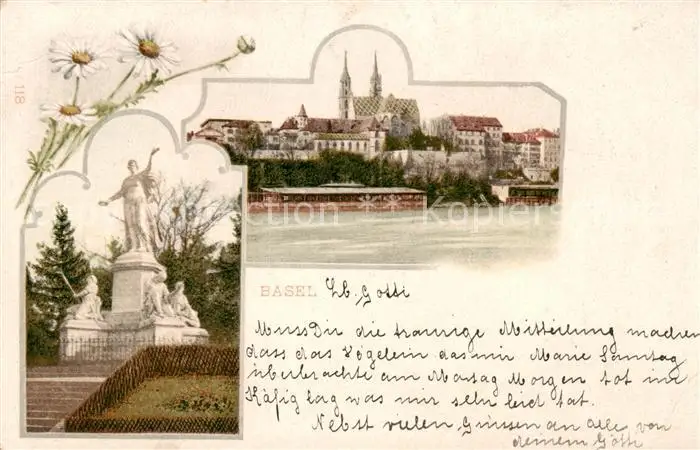 118
BASEL
Lb. Gotti
Muss Dir die traurige Mitteilung machen
dass das Vögelein das mir Marie Samstag
überbrachte am Montag Morgen tot im
Käfig lag was mir sehr leid tat.
Nebst vielen Grüssen an alle von
deinem Götti